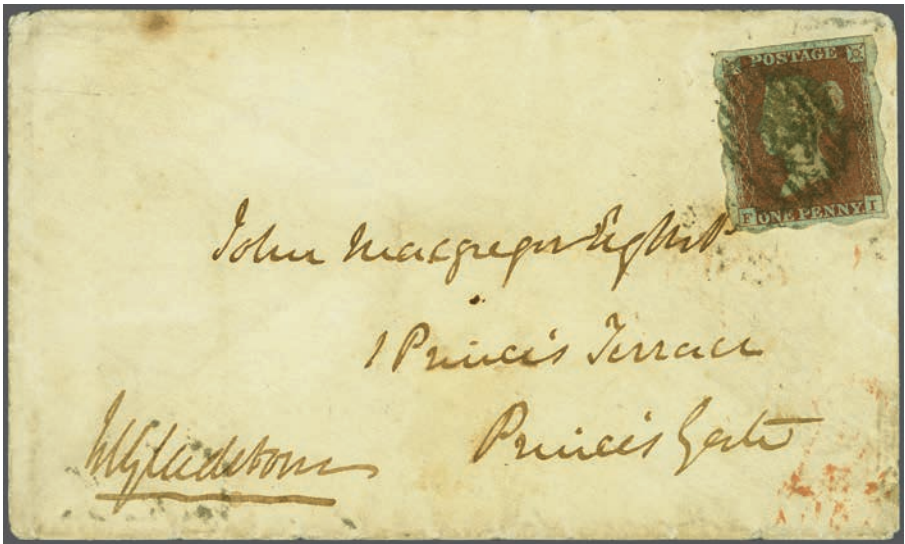 POSTAGE
F ONE PENNY I
John Macgregor Esq M.P.
1 Prince's Terrace
Prince's Gate
WGladstone